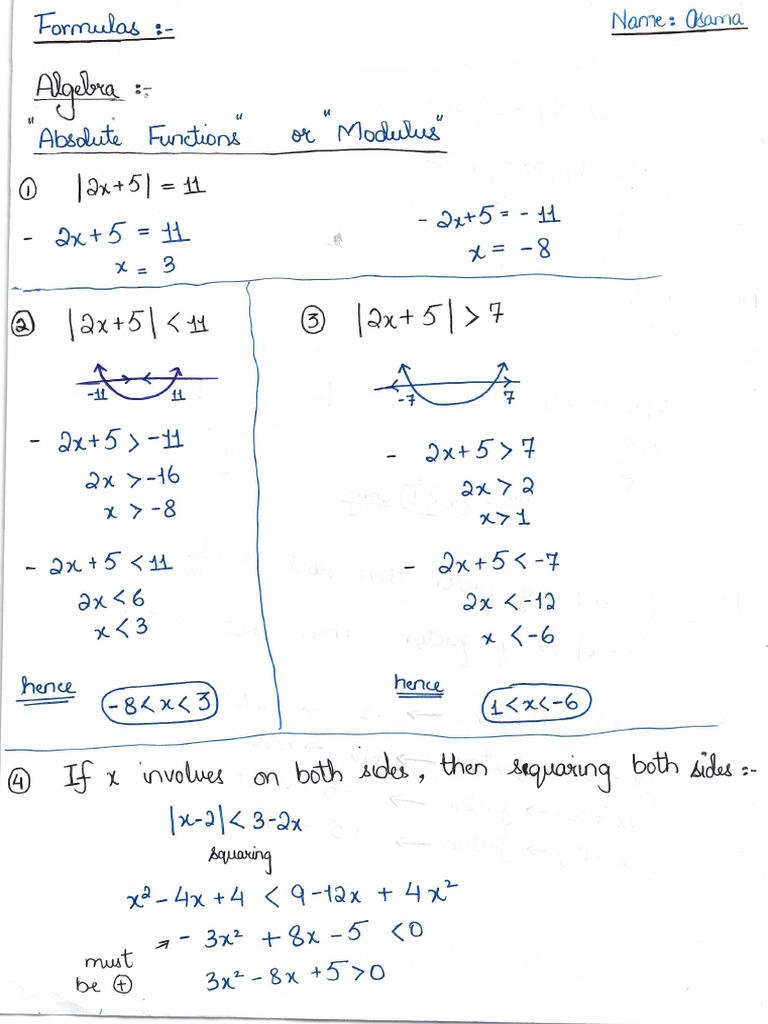 Formulas :-
Name: Osama
Algebra :-
"Absolute Functions" or "Modulus"
① |2x+5| = 11
- 2x+5 = 11
x = 3
- 2x+5 = -11
x = -8
② |2x+5| < 11
-11 11
- 2x+5 > -11
2x > -16
x > -8
- 2x+5 < 11
2x < 6
x < 3
hence -8 < x < 3
③ |2x+5| > 7
-7 7
- 2x+5 > 7
2x > 2
x > 1
- 2x+5 < -7
2x < -12
x < -6
hence 1 < x < -6
④ If x involves on both sides, then sequaring both sides :-
|x-2| < 3-2x
squaring
x² - 4x + 4 < 9 - 12x + 4x²
⇒ - 3x² + 8x - 5 < 0
must be ⊕
3x² - 8x + 5 > 0